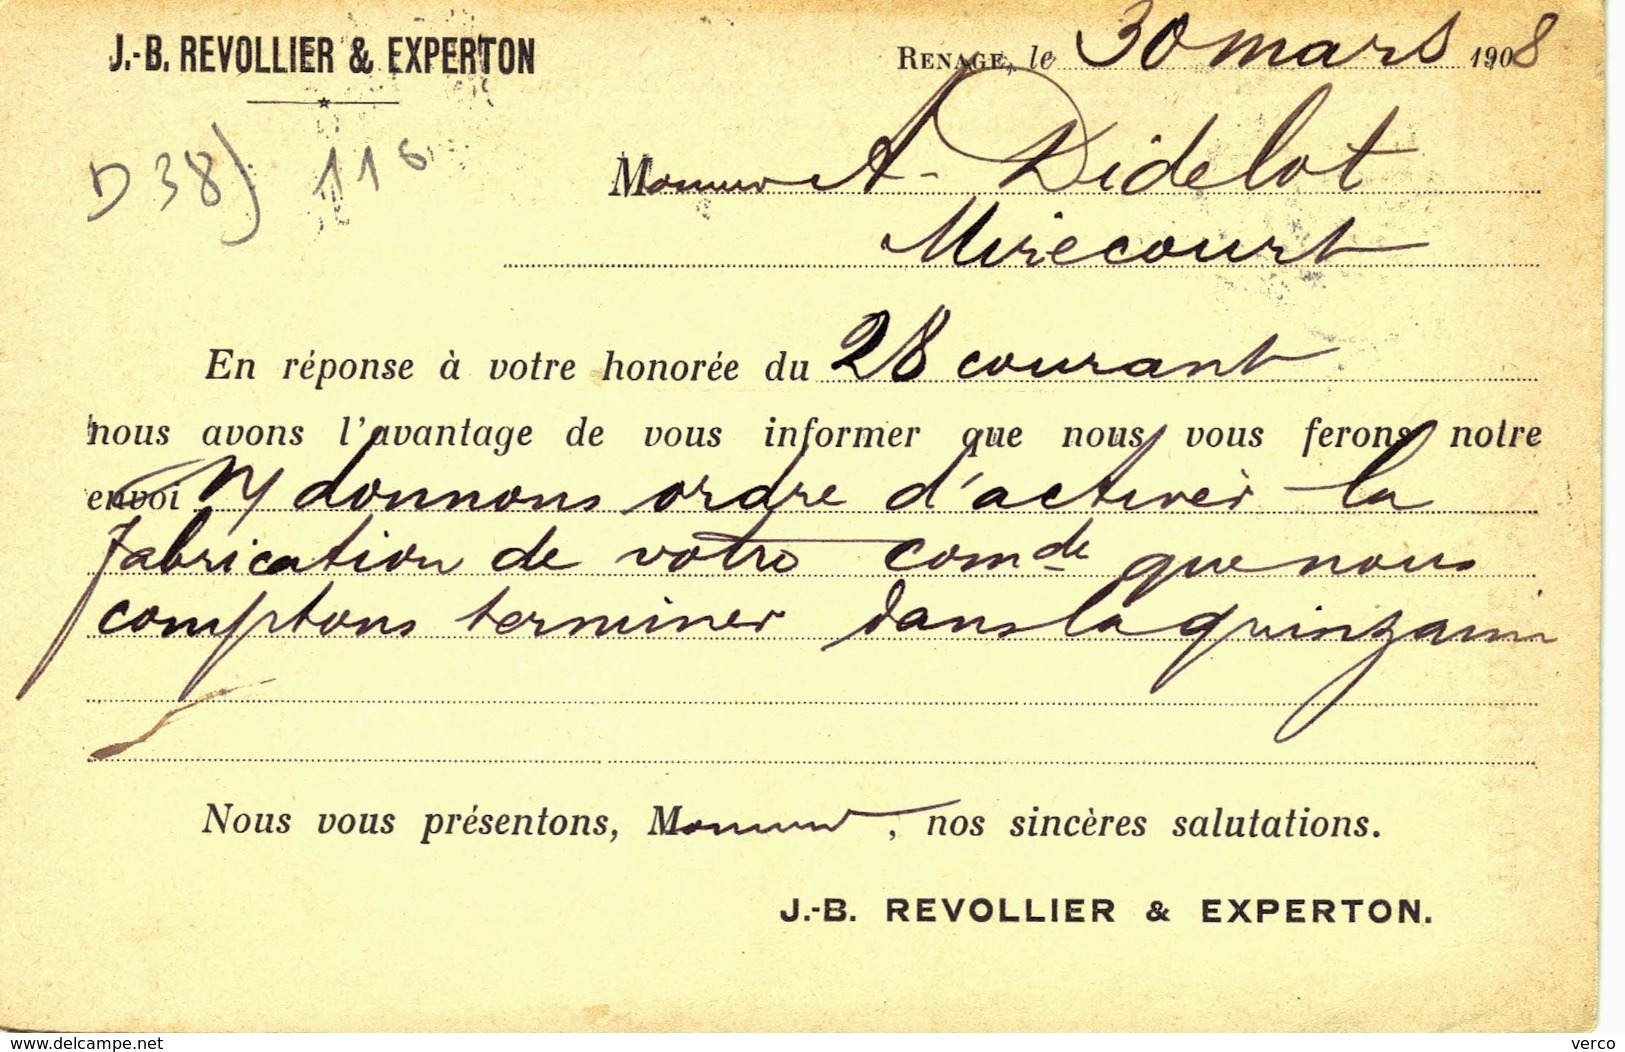 J.-B. REVOLLIER & EXPERTON
RENAGE, le 30 mars 1908
D38) 116
Monsieur A. Didelot
Mirecourt
En réponse à votre honorée du 28 courant
nous avons l'avantage de vous informer que nous vous ferons notre
envoi N/ donnons ordre d'activer la
fabrication de votre comde que nous
comptons terminer dans la quinzaine
Nous vous présentons, Monsieur, nos sincères salutations.
J.-B. REVOLLIER & EXPERTON.
www.delcampe.net
verco